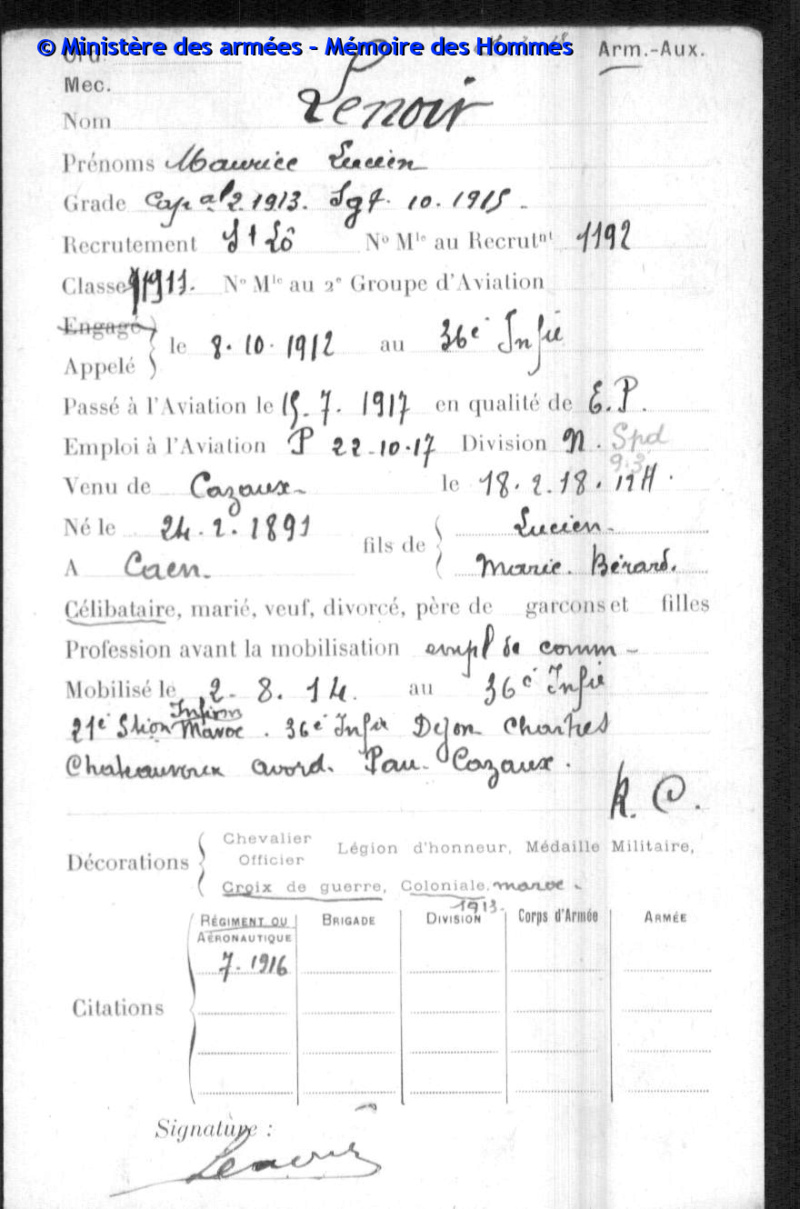 © Ministère des armées - Mémoire des Hommes
Arm.-Aux.
Ord.
Mec.
Nom Lenoir
Prénoms Maurice Lucien
Grade Cap al 2.1913. Sgt. 10.1915.
Recrutement St Lô No Mle au Recrutnt 1192
Classe 1911. No Mle au 2e Groupe d'Aviation
Engagé
Appelé } le 8.10.1912 au 36e Infie
Passé à l'Aviation le 15.7.1917 en qualité de E.P.
Emploi à l'Aviation P 22-10-17 Division N. Spd
9.3
Venu de Cazaux le 18.2.18. 12H.
Né le 24.2.1891 fils de { Lucien.
A Caen. Marie. Bérard.
Célibataire, marié, veuf, divorcé, père de garçons et filles
Profession avant la mobilisation empl de comm -
Mobilisé le 2.8.14. au 36e Infie
Infirm
21e Stion Maroc. 36e Infie Dijon Chartres
Chateauroux avord. Pau. Cazaux.
R.C.
Décorations { Chevalier
Officier Légion d'honneur, Médaille Militaire,
Croix de guerre, Coloniale, maroc.
1913.
Citations
RÉGIMENT OU AÉRONAUTIQUE BRIGADE DIVISION Corps d'Armée ARMÉE
7.1916
Signature :
Lenoir